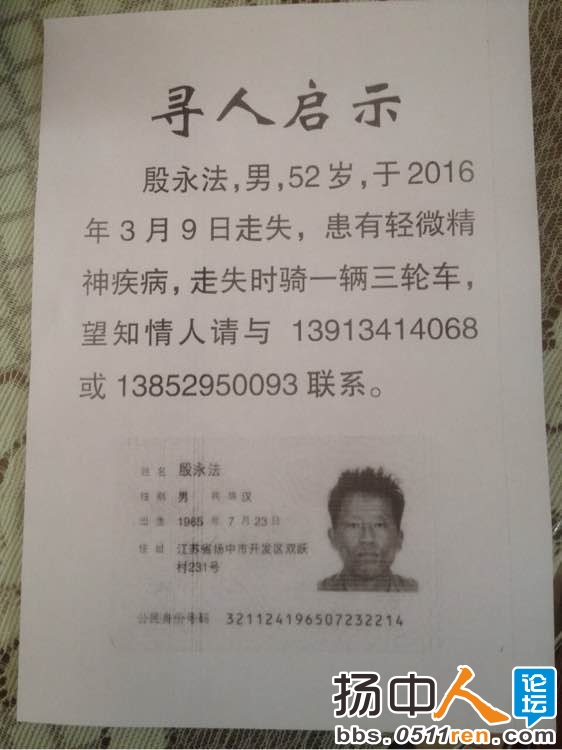 寻人启示
殷永法,男,52岁,于2016
年3月9日走失，患有轻微精
神疾病，走失时骑一辆三轮车，
望知情人请与 13913414068
或13852950093联系。
姓名 殷永法
性别 男 民族 汉
出生 1965 年 7 月 23 日
住址 江苏省扬中市开发区双跃
村231号
公民身份号码 321124196507232214
扬中人论坛
bbs.0511ren.com